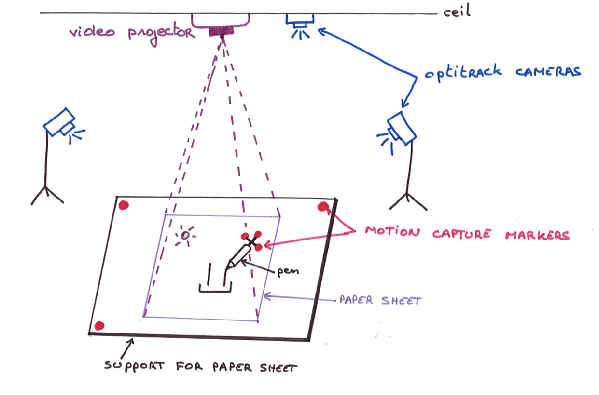 ceil
video projector
optitrack CAMERAS
MOTION CAPTURE MARKERS
pen
PAPER SHEET
SUPPORT FOR PAPER SHEET